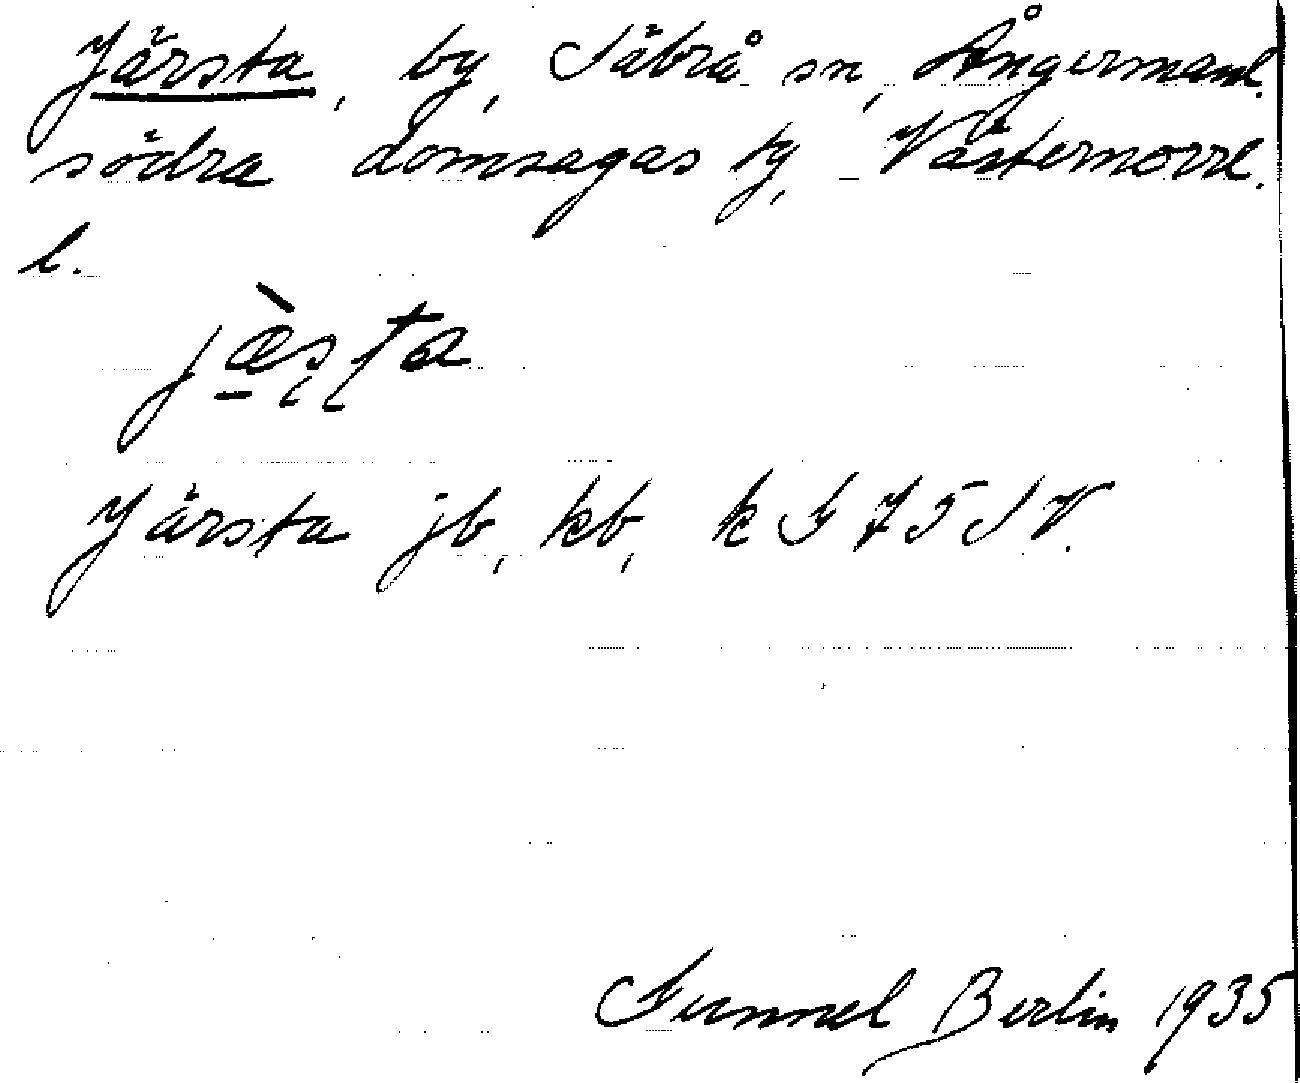 Järsta, by, Säbrå sn, Ångermanl.
södra domsagas tg, Västernorrl.
l.
jæ̀sta
Järsta jb, kb, k
Gunnel Berlin 1935